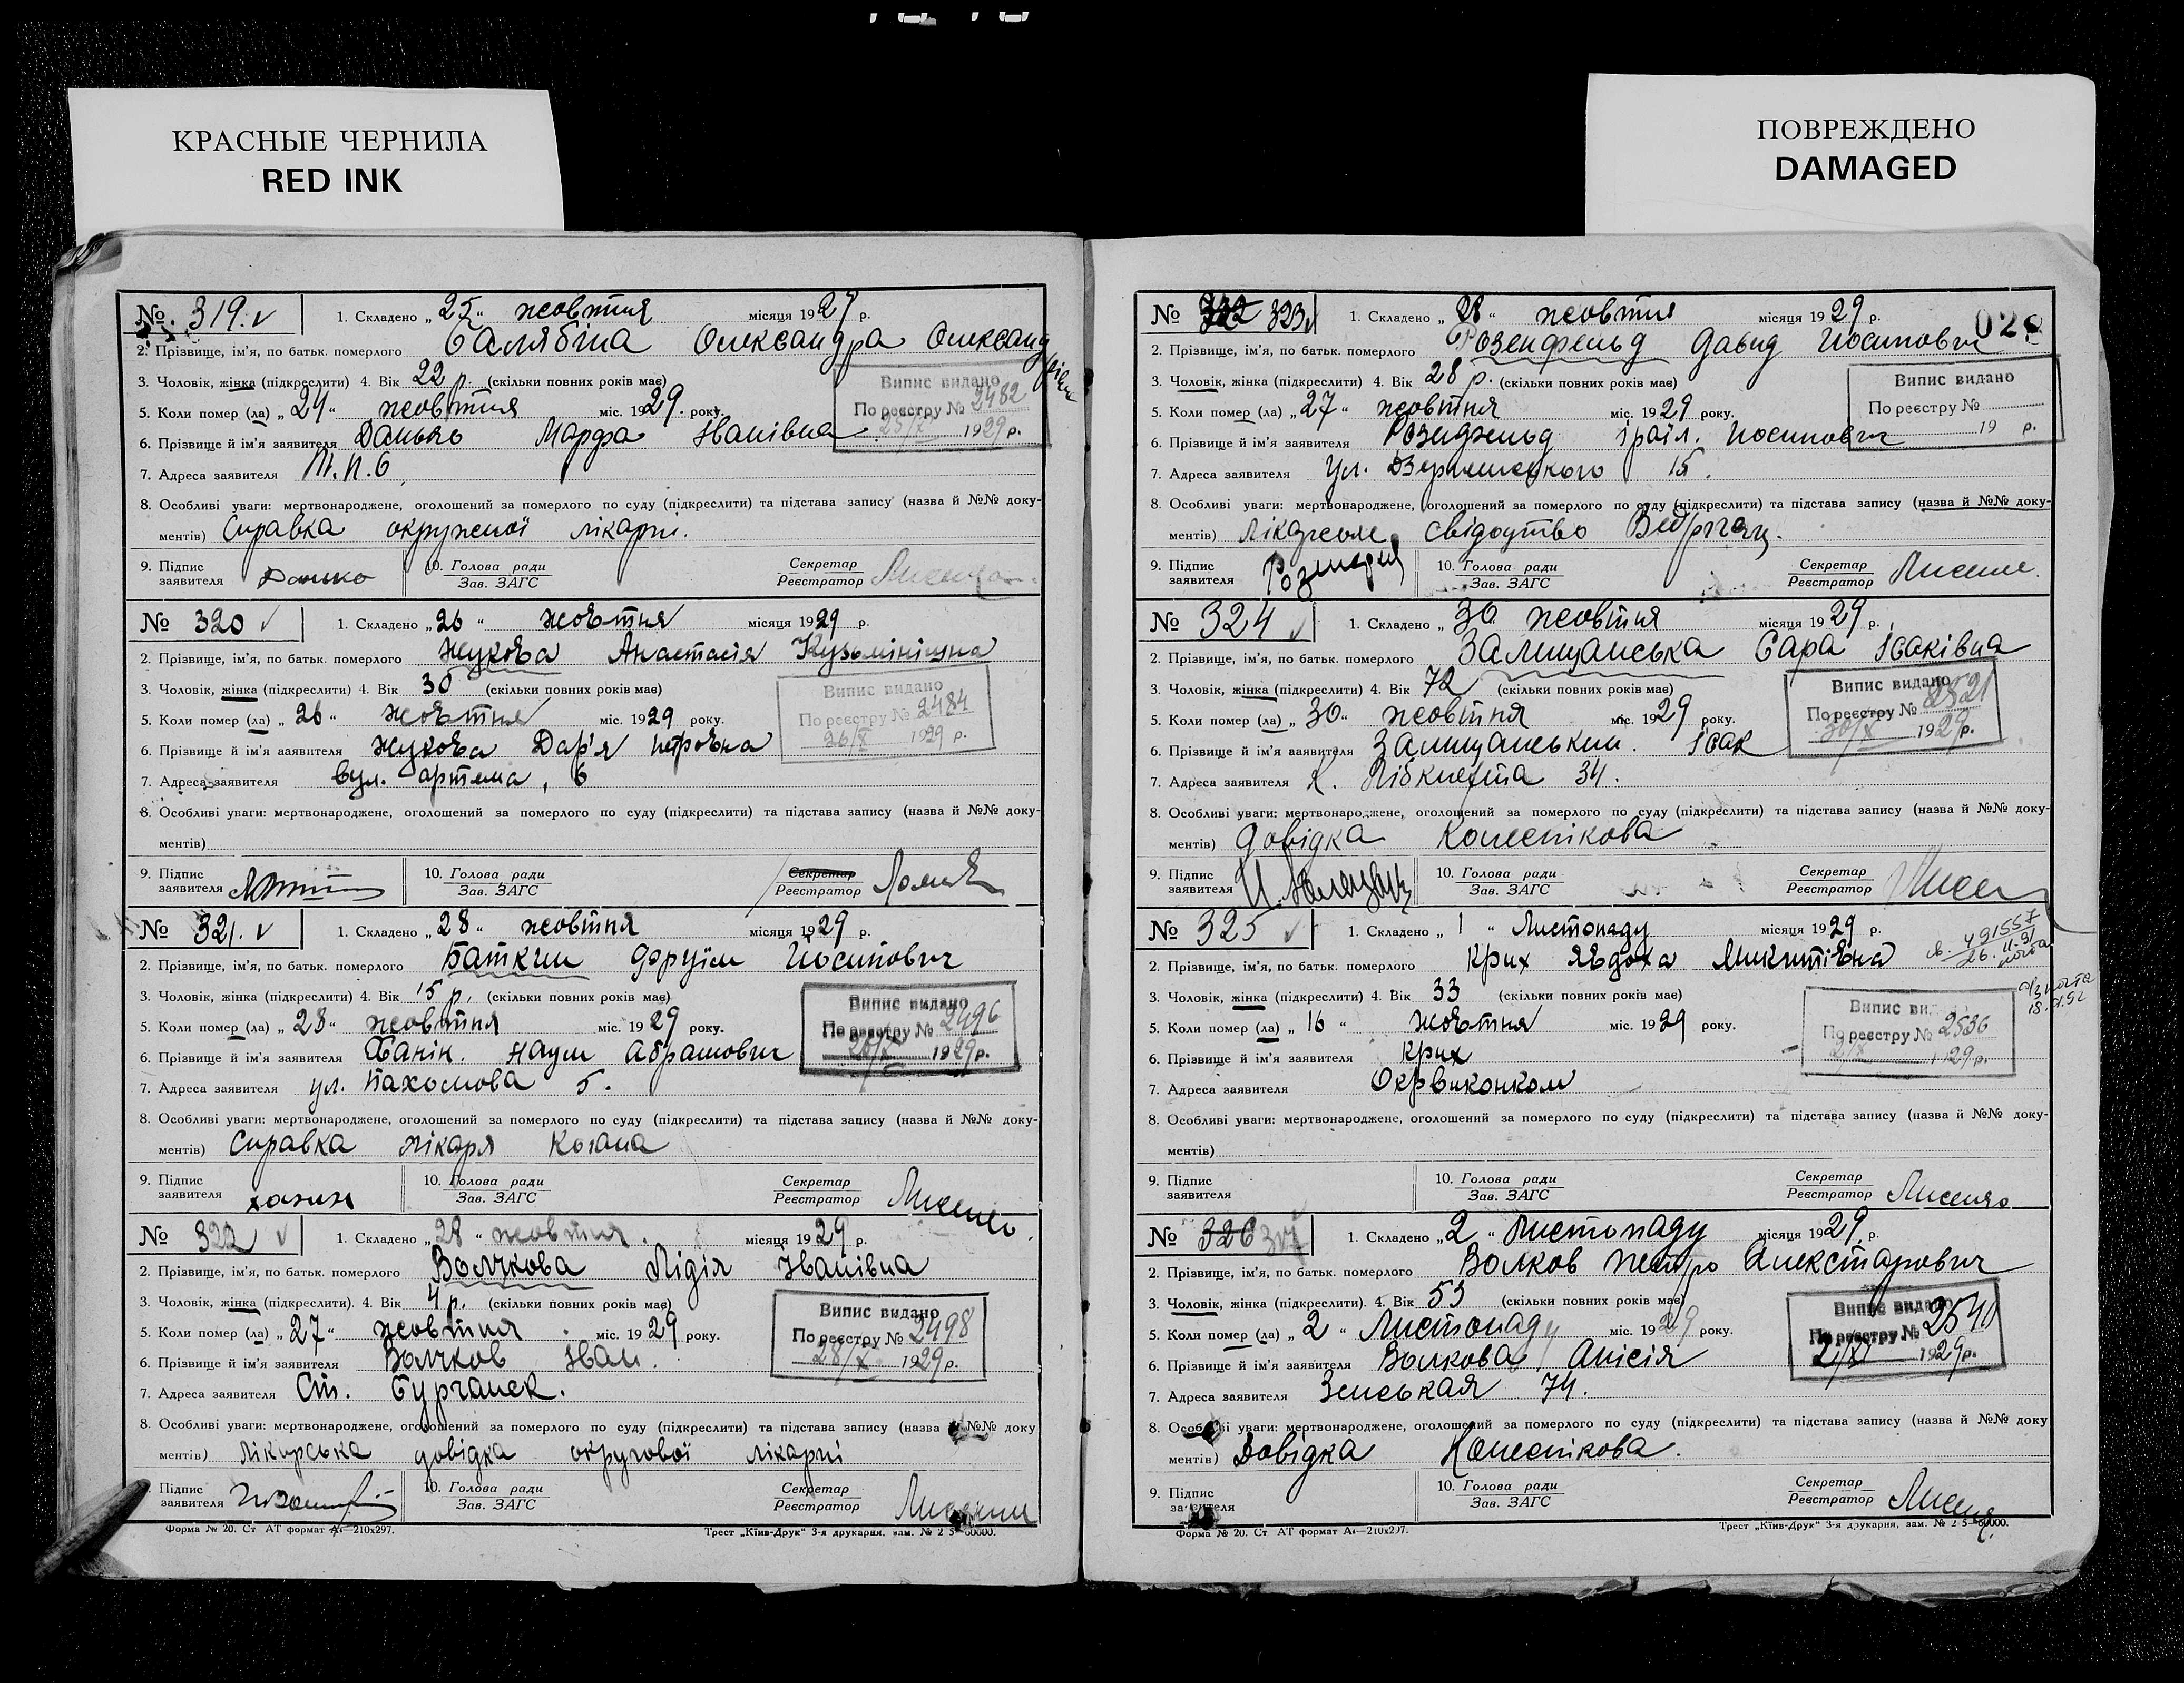 КРАСНЫЕ ЧЕРНИЛА
RED INK
ПОВРЕЖДЕНО
DAMAGED
№ 319. v 1. Складено „25" жовтня місяця 1929 р.
2. Прізвище, ім'я, по батьк. померлого Балябіна Олександра
3. Чоловік, жінка (підкреслити) 4. Вік 22 р. (скільки повних років має)
Випис видано
5. Коли помер (ла) „24" жовтня міс. 1929. року.
По реєстру № 2482
25/X 1929 р.
6. Прізвище й ім'я заявителя Марфа Іванівна
7. Адреса заявителя
8. Особливі уваги: мертвонароджене, оголошений за померлого по суду (підкреслити) та підстава запису (назва й №№ доку-
ментів) Справка окружної лікарні.
9. Підпис заявителя Данько
10. Голова ради
Зав. ЗАГС
Секретар
Реєстратор
№ 320 v 1. Складено „26" жовтня місяця 1929 р.
2. Прізвище, ім'я, по батьк. померлого Жукова Анастасія Кузьмінішна
3. Чоловік, жінка (підкреслити) 4. Вік 30 (скільки повних років має)
Випис видано
5. Коли помер (ла) „26" жовтня міс. 1929 року.
По реєстру № 2484
26/X 1929 р.
6. Прізвище й ім'я заявителя Жукова Дар'я Петровна
7. Адреса заявителя вул. Артема, 6
8. Особливі уваги: мертвонароджене, оголошений за померлого по суду (підкреслити) та підстава запису (назва й №№ доку-
ментів)
9. Підпис заявителя
10. Голова ради
Зав. ЗАГС
Секретар
Реєстратор
№ 321. v 1. Складено „28" жовтня місяця 1929 р.
2. Прізвище, ім'я, по батьк. померлого Баткин Йосипович
3. Чоловік, жінка (підкреслити) 4. Вік 15 р. (скільки повних років має)
Випис видано
5. Коли помер (ла) „28" жовтня міс. 1929 року.
По реєстру № 2496
28/X 1929 р.
6. Прізвище й ім'я заявителя Ханін. Наум Абрамович
7. Адреса заявителя ул. Пахомова 5.
8. Особливі уваги: мертвонароджене, оголошений за померлого по суду (підкреслити) та підстава запису (назва й №№ доку-
ментів) Справка лікаря Когана
9. Підпис заявителя Ханин
10. Голова ради
Зав. ЗАГС
Секретар
Реєстратор
№ 322 v 1. Складено „28" жовтня. місяця 1929 р.
2. Прізвище, ім'я, по батьк. померлого Волчкова Лідія Іванівна
3. Чоловік, жінка (підкреслити). 4. Вік 4 р. (скільки повних років має)
Випис видано
5. Коли помер (ла) „27" жовтня. міс. 1929 року.
По реєстру № 2498
28/X 1929 р.
6. Прізвище й ім'я заявителя Волчков Іван.
7. Адреса заявителя Ст.
8. Особливі уваги: мертвонароджене, оголошений за померлого по суду (підкреслити) та підстава запису (назва №№ доку
ментів) Лікарська довідка округової лікарні
Підпис заявителя
10. Голова ради
Зав. ЗАГС
Секретар
Реєстратор
Форма № 20. Ст АТ формат А4—210x297.
Трест „Київ-Друк" 3-я друкарня, зам. №
№ 323 v 1. Складено „28" жовтня місяця 1929 р.
028
2. Прізвище, ім'я, по батьк. померлого Розенфельд Давид Йосипович
3. Чоловік, жінка (підкреслити) 4. Вік 28 р. (скільки повних років має)
Випис видано
5. Коли помер (ла) „27" жовтня міс. 1929 року.
По реєстру №
19 р.
6. Прізвище й ім'я заявителя Розенфельд Ізраїл. Йосипович
7. Адреса заявителя ул. Дзержинського 15.
8. Особливі уваги: мертвонароджене, оголошений за померлого по суду (підкреслити) та підстава запису (назва й №№ доку-
ментів) свідоцтво
9. Підпис заявителя
10. Голова ради
Зав. ЗАГС
Секретар
Реєстратор
№ 324 v 1. Складено „30 жовтня місяця 1929 р.
2. Прізвище, ім'я, по батьк. померлого Залищанська Сара Ісаківна
3. Чоловік, жінка (підкреслити) 4. Вік 72 (скільки повних років має)
Випис видано
5. Коли помер (ла) „30" жовтня міс. 1929 року.
По реєстру № 2521
30/X 1929 р.
6. Прізвище й ім'я заявителя Залищанський. Ісак
7. Адреса заявителя К. Лібкнехта 34.
8. Особливі уваги: мертвонароджене, оголошений за померлого по суду (підкреслити) та підстава запису (назва й №№ доку-
ментів) довідка Колеснікова
9. Підпис заявителя
10. Голова ради
Зав. ЗАГС
Секретар
Реєстратор
№ 325 v 1. Складено „1" Листопаду місяця 1929 р.
2. Прізвище, ім'я, по батьк. померлого Крих Явдоха Микитівна
3. Чоловік, жінка (підкреслити) 4. Вік 33 (скільки повних років має)
5. Коли помер (ла) „16" жовтня міс. 1929 року.
По реєстру № 2536
29 р.
6. Прізвище й ім'я заявителя Крих
7. Адреса заявителя Окрвиконком
8. Особливі уваги: мертвонароджене, оголошений за померлого по суду (підкреслити) та підстава запису (назва й №№ доку-
ментів)
9. Підпис заявителя
10. Голова ради
Зав. ЗАГС
Секретар
Реєстратор
№ 326 1. Складено „2" Листопаду місяця 1929. р.
2. Прізвище, ім'я, по батьк. померлого Волков Петро
3. Чоловік, жінка (підкреслити). 4. Вік 53 (скільки повних років має)
Випис видано
5. Коли помер (ла) „2" Листопаду міс. 1929 року.
По реєстру № 2540
2/XI 1929 р.
6. Прізвище й ім'я заявителя Волкова Анісія
7. Адреса заявителя 74.
8. Особливі уваги: мертвонароджене, оголошений за померлого по суду (підкреслити) та підстава запису (назва й №№ доку
ментів) Довідка Колеснікова.
9. Підпис
10. Голова ради
Зав. ЗАГС
Секретар
Реєстратор
Форма № 20. Ст АТ формат А4—210x297.
Трест „Київ-Друк" 3-я друкарня, зам. №